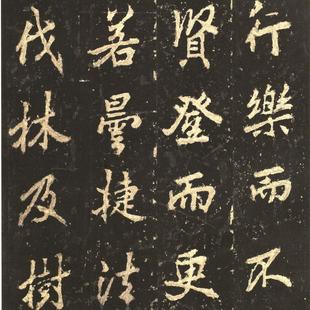 行樂而不
賢登而更
若曇捷法
伐林及樹